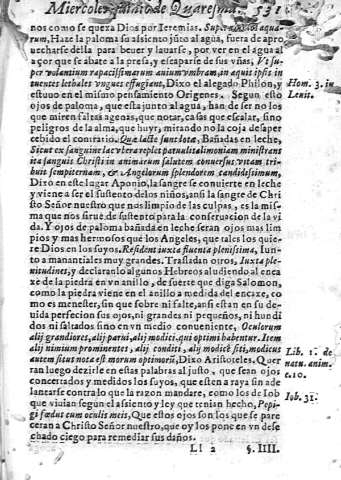 Miercoles medio de Quaresma. 531
nos como se queza Dios por Ieremias. Super riuos aqua-
rum, Haze la paloma su assiento justo al agua, fuera de apro-
uecharse della para beuer y lauarse, por ver en el agua al
açor que se abate a la presa, y escaparse de sus vñas, Vt su-
per volantium rapacissimarum auium vmbram, in aquis ipsis in
tuentes lethales vngues effugiant, Dixo el alegado Philon, y
estuuo en el mismo pensamiento Origenes. Segun esto
ojos de paloma, que esta junto al agua, han de ser no los
que miren faltas agenas, que notar, casas que escalar, sino
peligros de la alma, que huyr, mirando no la coja desaper
cebido el contrario. Quæ lacte sunt lotæ, Bañadas en leche,
Sicut ex sanguine lac vbera replet paruulis alimoniam ministrant
ita sanguis Christi in animarum salutem conuersus vitam tri-
buit sempiternam, & Angelorum splendorem candidissimum,
Dixo en este lugar Aponio, la sangre se conuierte en leche
y viene a ser el sustento de los niños, ansi la sangre de Chri
sto Señor nuestro que nos limpio de las culpas, es la mis-
ma que nos sirue de sustento para la conseruacion de la vi
da. Y ojos de paloma bañada en leche seran ojos mas lim
pios y mas hermosos que los Angeles, que tales los quie-
re Dios en los suyos. Resident iuxta fluenta plenissima, Iun-
to a manantiales muy grandes. Trasladan otros, Iuxta ple-
nitudines, y declaranlo algunos Hebreos aludiendo al enca
xe de la piedra en vn anillo, de suerte que diga Salomon,
como la piedra viene en el anillo a medida del encaxe, co
mo es menester, sin que sobre ni falte, ansi estan en su de-
uida perfecion sus ojos, ni grandes ni pequeños, ni hundi
dos ni saltados sino en vn medio conueniente, Oculorum
alij grandiores, alij parui, alij modici, qui optimi babentur. Item
alij nimium prominentes, alij conditi, alij modicè siti, modicus
autem situs nota est morum optimorũ, Dixo Aristoteles. Que
ran luego dezirle en estas palabras al justo, que sean ojos
concertados y medidos los suyos, que esten a raya sin ade
lantarse contra lo que la razon mandare, como los de Iob
que viuian segun el assiento y ley que tenian hecho, Pepi-
gi fœdus cum oculis meis, Que estos ojos son los que se pare
ceran a Christo Señor nuestro, que oy los pone en vn dese
chado ciego para remediar sus daños.
Ll 2 §. IIII.
Hom. 3. in
Leuit.
Lib. 1. de
natu. anim.
c. 10.
Iob. 31.